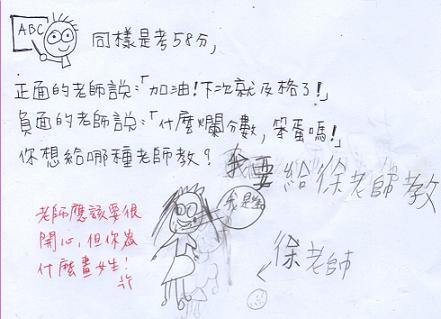 ABC
同樣是考58分，
正面的老師說：「加油！下次就及格了！」
負面的老師說：「什麼爛分數，笨蛋嗎！」
你想給哪種老師教？我要給徐老師教
老師應該要很
開心，但你為
什麼畫女生！
我是
徐老師